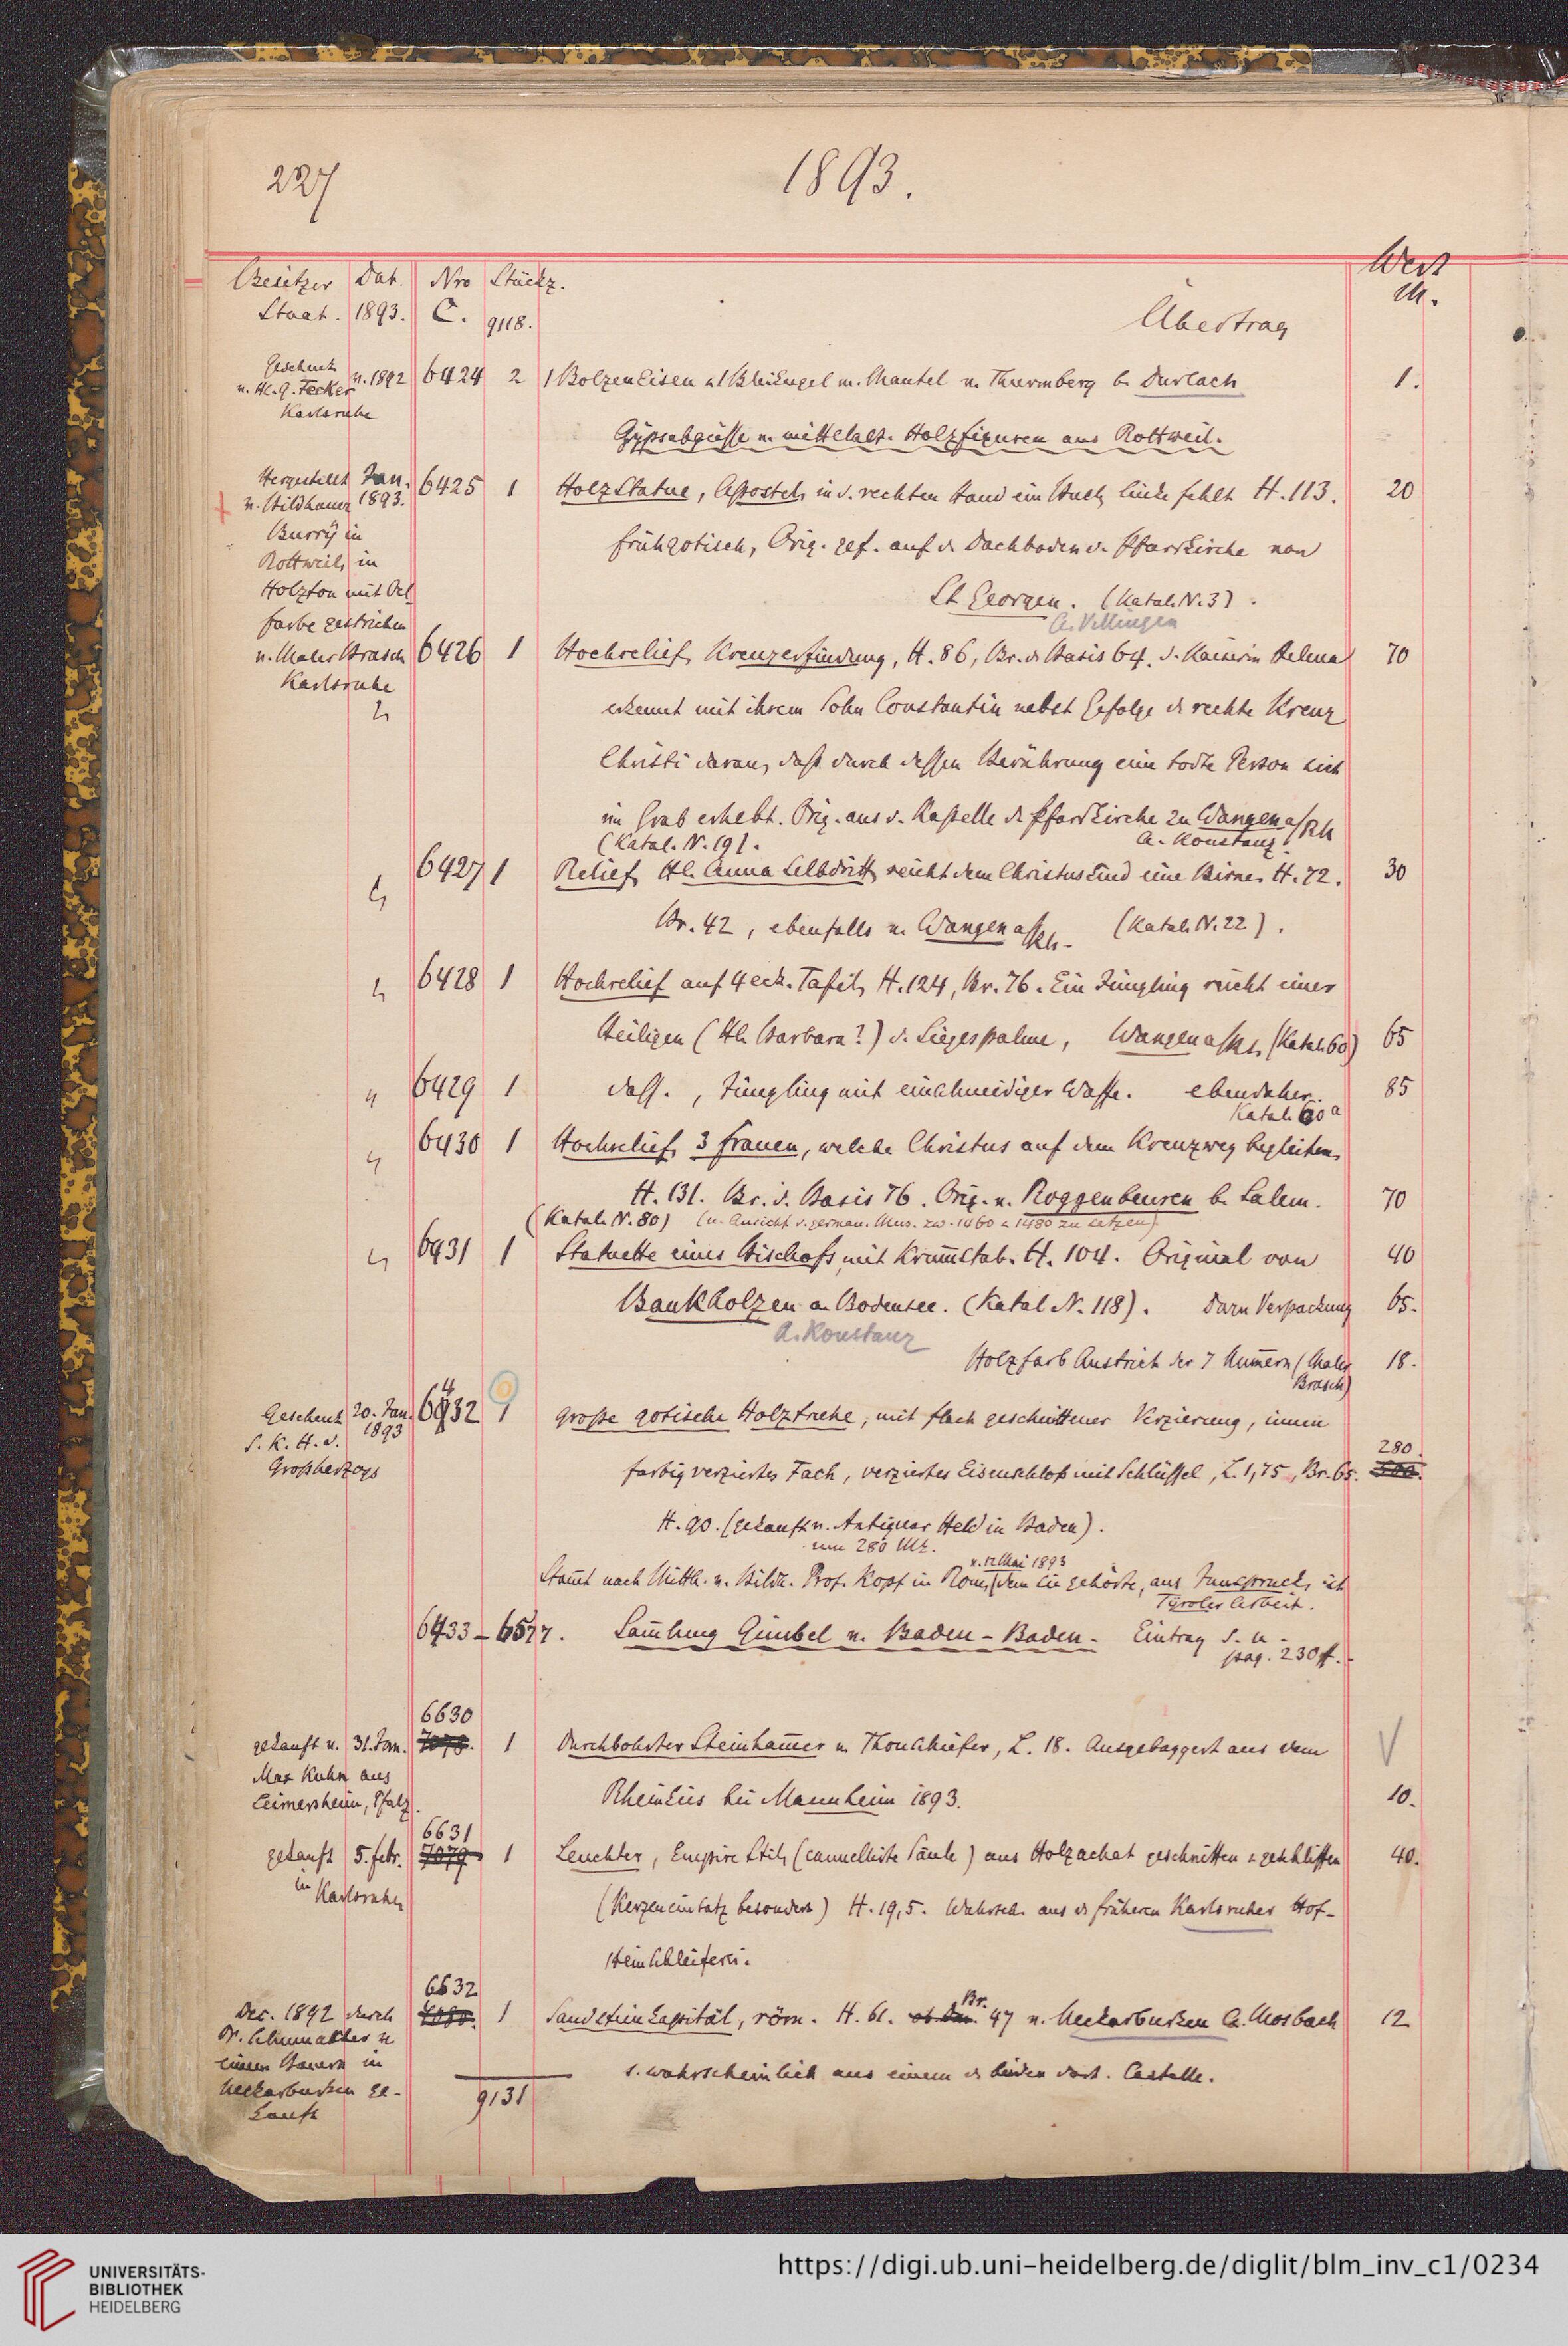 227
1893.
Besitzer Dat. Nro Stückz. Wert
Staat. 1893. C. 9118. M.
Übertrag
Geschenk
v. H. G. Fecker v. 1892 6424 2 1 Bolzeneisen u 1 Bleikugel m. Mantel v. Thurmberg b. Durlach 1.
Karlsruhe
Gypsabgüsse v. mittelalt. Holzfiguren aus Rottweil.
Hergestellt Jan. 6425 1 Holzstatue, Apostel, in d. rechten Hand ein Buch, linke fehlt H. 113. 20
v. Bildhauer 1893.
Burry in frühgotisch, Orig. gef. auf d. Dachboden d. Pfarrkirche von
Rottweil, in
Holzton mit Oel St Georgen. (Katal. N. 3).
farbe gestrichen A. Villingen
v. Maler Brasch 6426 1 Hochrelief, Kreuzerfindung, H. 86, Br. d. Basis 64. d. Kaiserin Helena 70
Karlsruhe
erkennt mit ihrem Sohn Constantin nebst Gefolge d. rechte Kreuz
Christi daran, daß durch dessen Berührung eine todte Person sich
im Grab erhebt. Orig. aus d. Kapelle d. Pfarrkirche zu Wangen a/Rh
(Katal. N. 19). A. Konstanz.
6427 1 Relief, Hl. Anna Selbdritt, reicht dem Christuskind eine Birne. H. 72. 30
Br. 42, ebenfalls v. Wangen a/Rh. (Katal. N. 22).
6428 1 Hochrelief auf 4eck. Tafel, H. 124, Br. 76. Ein Jüngling reicht einer
Heiligen (Hl. Barbara?) d. Siegespalme, Wangen a/Rh. (Katal. 60) 65
6429 1 dass., Jüngling mit einschneidiger Waffe. ebendaher. 85
Katal. 60a
6430 1 Hochrelief, 3 Frauen, welche Christus auf dem Kreuzweg begleiten,
H. 131. Br. d. Basis 76. Orig. v. Roggenbeuren b. Salem. 70
(Katal. N. 80) (n. Ansicht d. german. Mus. zw. 1460 u 1480 zu setzen)
6431 1 Statuette eines Bischofs, mit Krum̄stab. H. 104. Original von 40
Bankholzen a. Bodensee. (Katal. N. 118). Dazu Verpackung 65.
A. Konstanz
Holzfarb Anstrich der 7 Num̄ern (Maler 18.
Brasch)
Geschenk 20. Jan. 6432 1 Große gotische Holztruhe, mit flach geschnittener Verzierung, innen
S. K. H. d. 1893
Großherzogs farbig verziertes Fach, verziertes Eisenschloß mit Schlüssel, L. 1,75, Br. 65. 280.
H. 90. (gekauft v. Antiquar Held in Baden).
um 280 Mk.
v. 12 Mai 1893
Stam̄t nach Mitth. v. Bildh. Prof. Kopf in Rom, dem sie gehörte, aus Innspruck, ist
Tyroler Arbeit.
6433–6577. Sam̄lung Gimbel v. Baden-Baden. Eintrag s. u.
pag. 230 ff.
6630
gekauft v. 31. Jan. 7078. 1 Durchbohrter Steinham̄er v. Thonschiefer, L. 18. Ausgebaggert aus dem
Max Kuhn aus
Leimersheim, Pfalz. Rheinkies bei Mannheim 1893. 10.
6631
gekauft 5. Febr. 7079 1 Leuchter, Empire Stil, (cannellirte Säule) aus Holzachat geschnitten u geschliffen 40.
in Karlsruhe
(Kerzeneinsatz besonders) H. 19,5. Wahrsch. aus d. früheren Karlsruher Hof-
steinschleiferei.
6632
Dec. 1892 durch 7080. 1 Sandsteinkapitäl, röm. H. 61. Br. 47 v. Neckarburken A. Mosbach 12
Dr. Schumacher v.
einem Bauern in s. wahrscheinlich aus einem d. beiden dort. Castelle.
Neckarburken ge-
kauft 9131
UNIVERSITÄTS-
BIBLIOTHEK
HEIDELBERG
https://digi.ub.uni-heidelberg.de/diglit/blm_inv_c1/0234